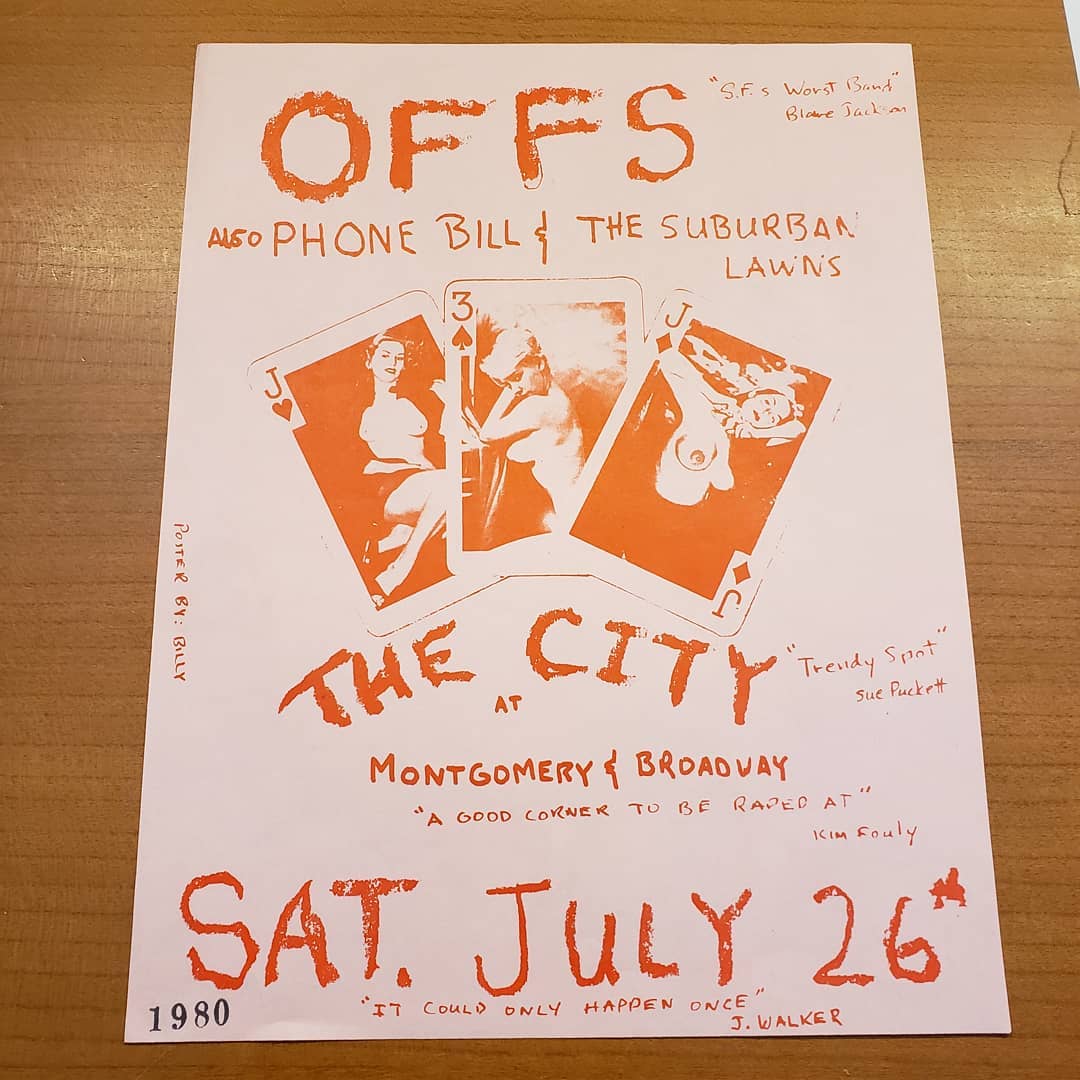 OFFS
"S.F.s Worst Band"
Blare Jackson
ALSO PHONE BILL & THE SUBURBAN
LAWNS
J
3
J
J
POSTER BY: BILLY
THE CITY
AT
"Trendy Spot"
Sue Puckett
MONTGOMERY & BROADWAY
"A GOOD CORNER TO BE RAPED AT"
KIM FOULY
SAT. JULY 26
1980
"IT COULD ONLY HAPPEN ONCE"
J. WALKER